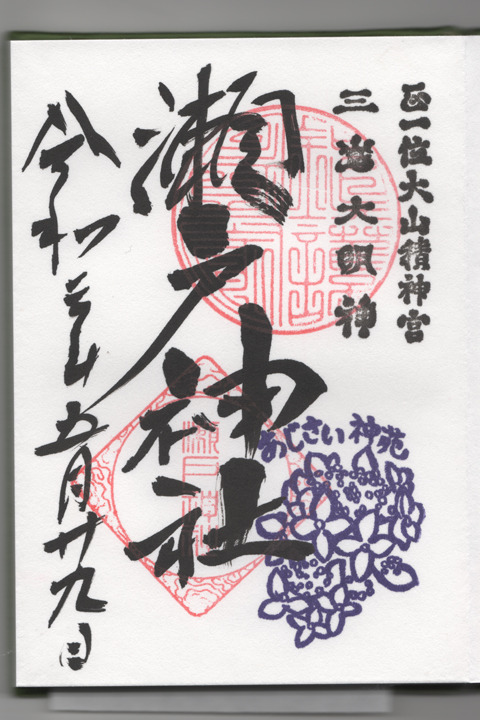 正一位大山積神宮
三嶌大明神
瀬戸神社
あじさい神苑
瀬戸神社
令和元年五月廿九日